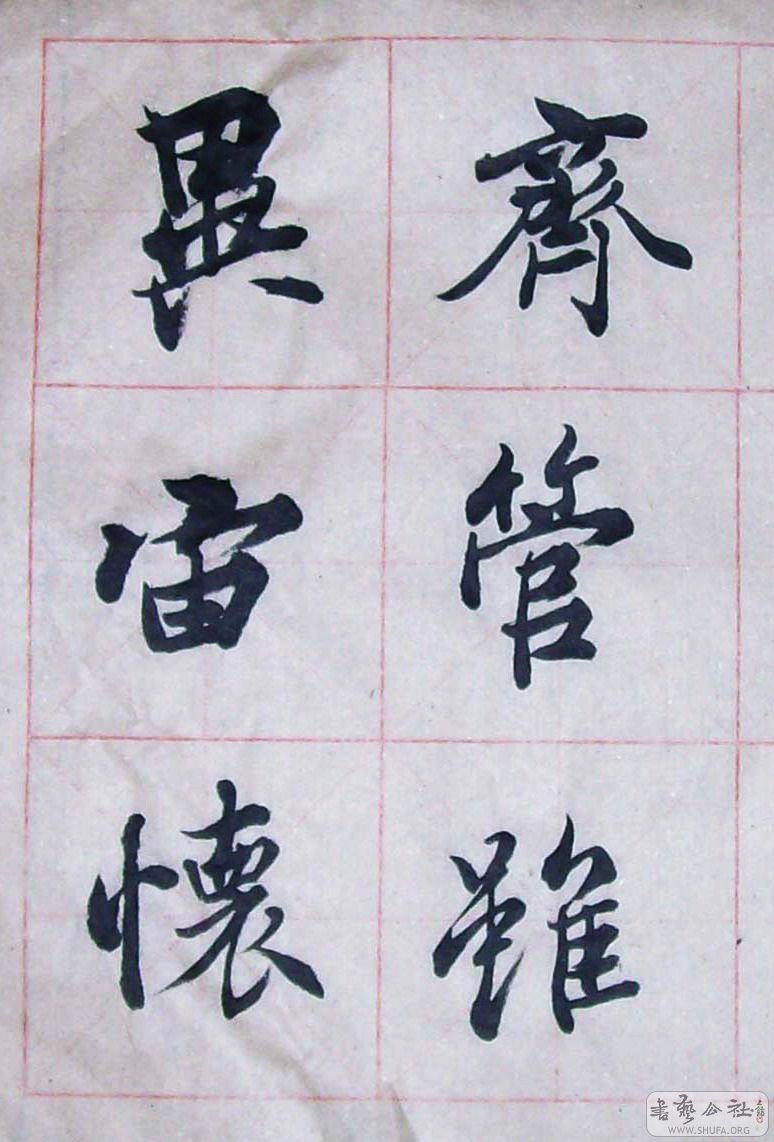 齊管雖
異宙懷
書藝公社
WWW.SHUFA.ORG